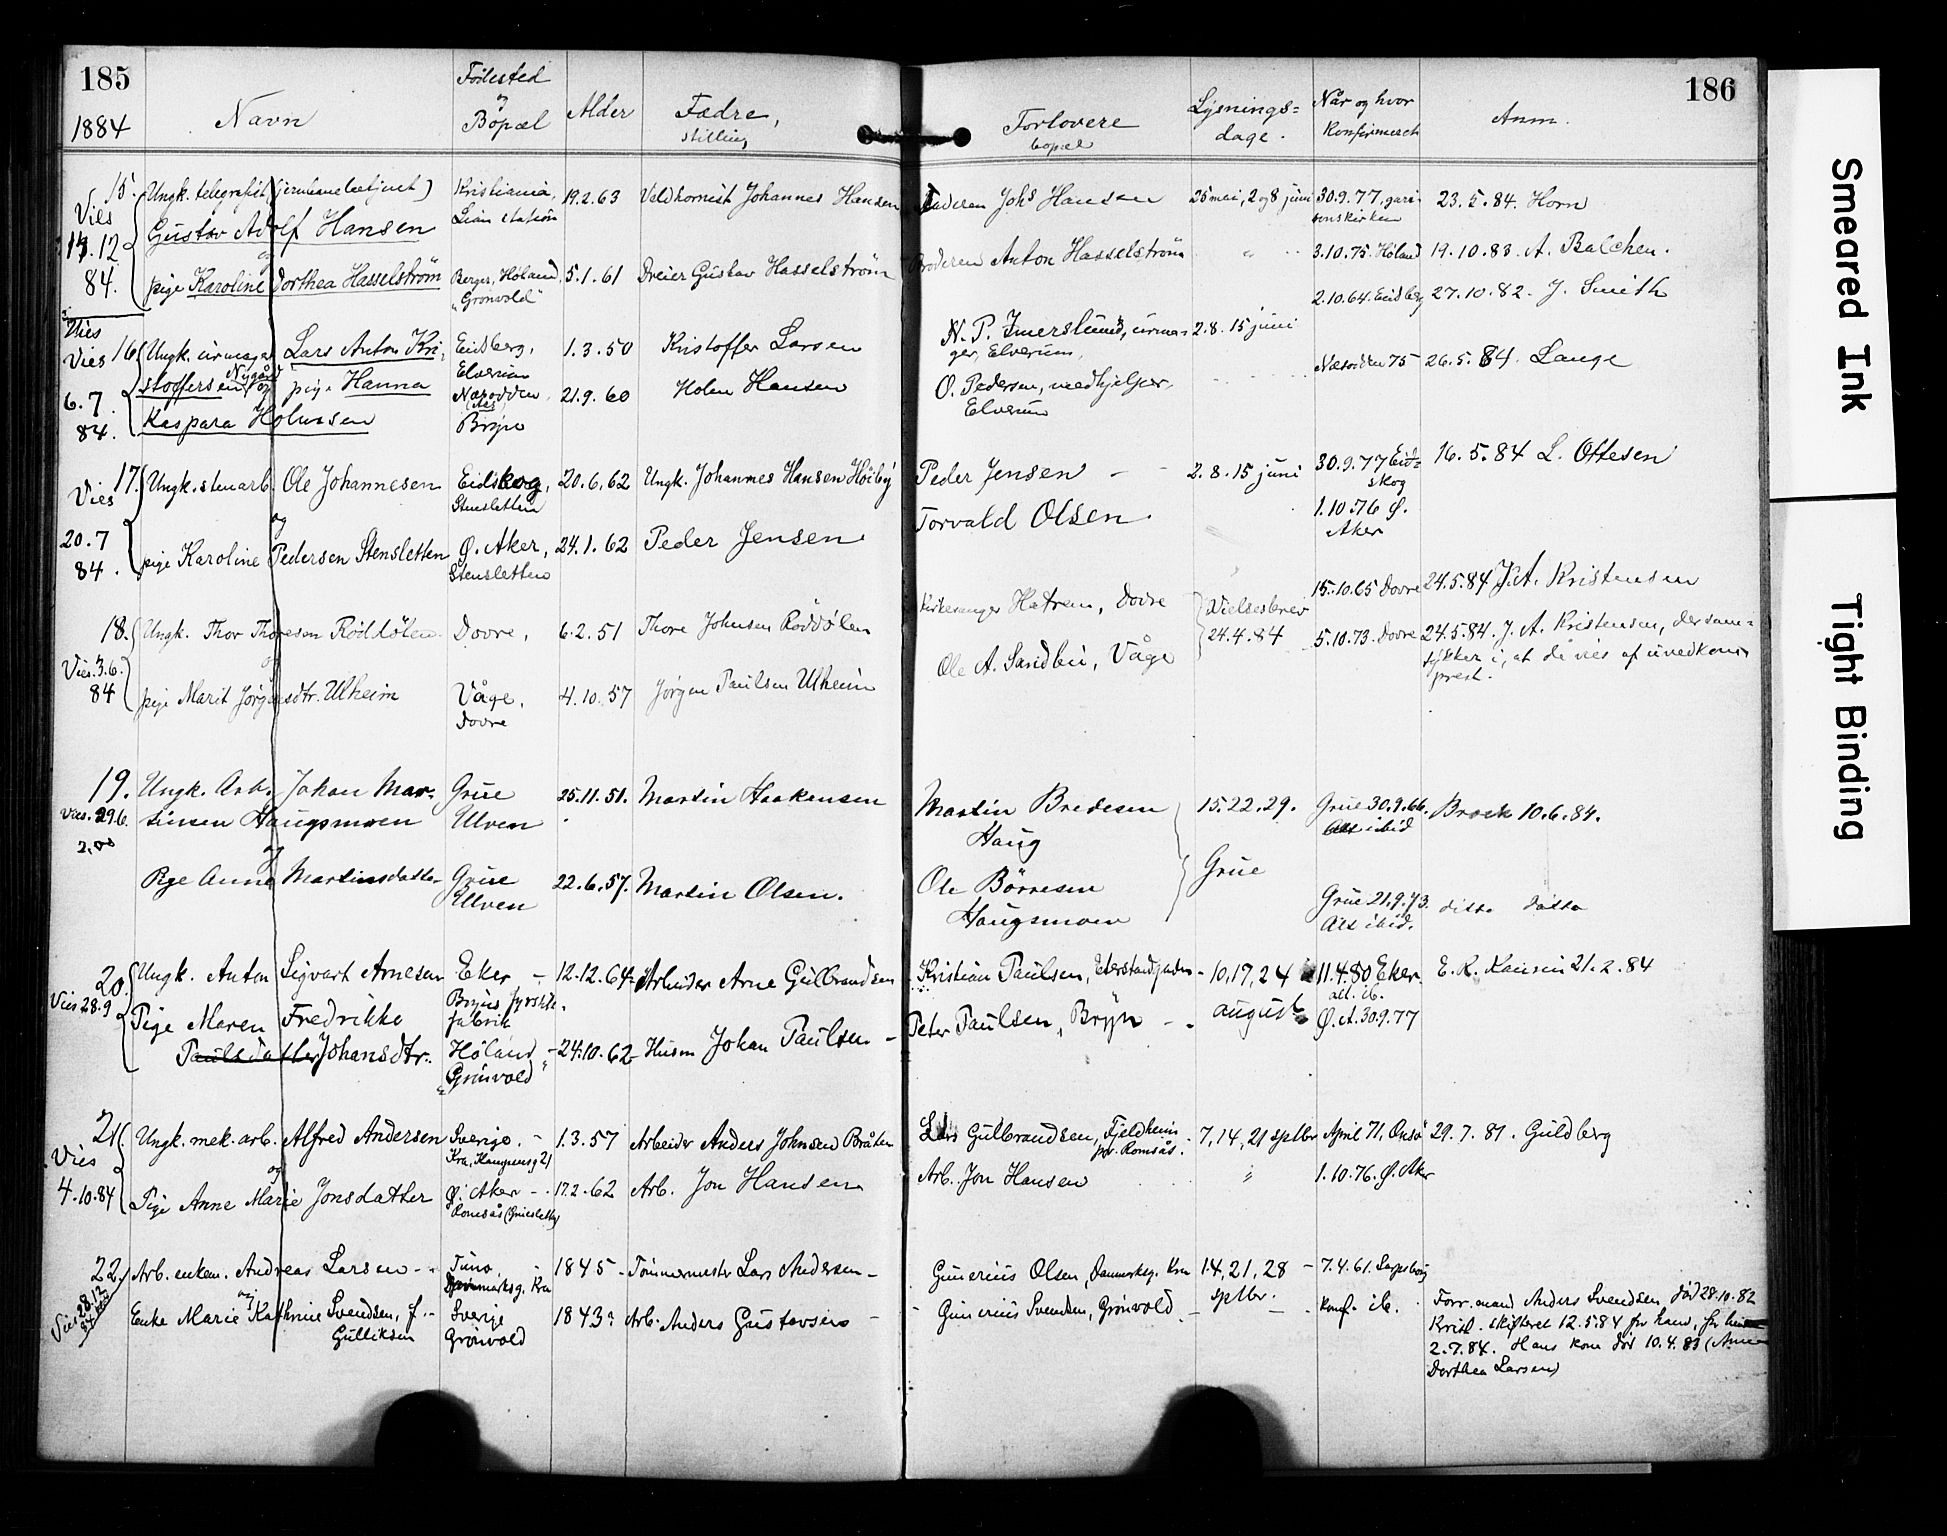 185
1884
Navn
Födested
og
Böpæl
Alder
Fædre,
stilling
15.
Vies
14.12
84.
Ungk. telegrafist (jernbanebetjent)
Gustav Adolf Hansen
og
pige Karoline Dorthea Hasselström
Kristiania,
Lian station
Berger, Høland,
"Grönvold"
19.2.63
5.1.61
Valdhornist Johannes Hansen
Dreier Gustav Hasselström
Vies
Vies 16
6.7.
84.
Ungk. urmager Lars Anton Kri-
stoffersen Nygård og pige Hanna
Kaspara Holmsen
Eidsberg,
Elverum
Næsodden,
(Aas)
Bryn
1.3.50
21.9.60
Kristoffer Larsen
Holm Hansen
17.
Vies
20.7
84.
Ungk. stenarb. Ole Johannesen
og
pige Karoline Pedersen Stensletten
Eidskog,
Stensletten
Ø. Aker,
Stensletten
20.6.62
24.1.62
Ungk. Johannes Hansen Höiby
Peder Jensen
18.
Vies. 3.6.
84
Ungk. Thor Thoresen Röddölen
og
pige Marit Jörgensdtr. Ulheim
Dovre,
Våge,
Dovre
6.2.51
4.10.57
Thore Johnsen Röddölen
Jørgen Paulsen Ulheim
19.
Vies. 29.6.
Ungk. Arb. Johan Mar-
tinsen Haugsmoen
og
Pige Anne Martinsdatter
Grue
Ulven
Grue
Ulven
25.11.51.
22.6.57.
Martin Haakensen
Martin Olsen.
20.
Vies 28.9
Ungk. Anton Sigvart Arnesen
Pige Maren Fredrikke
Paulsdatter Johansdtr.
Eker -
Bryns fyrstik-
fabrik
Höland -
"Grönvold"
12.12.64
24.10.62
Arbeider Arne Gulbrandsen
Husm Johan Paulsen -
21.
Vies
4.10.84
Ungk. mek. arb. Alfred Andersen
og
Pige Anne Marie Jonsdatter
Sverige. -
Kra, Kampensg 21
Ø. Aker -
Romsås (Gruesletten)
1.3.57
17.2.62
Arbeider Anders Johnsen Bråten
Arb. Jon Hansen
22.
Vies 28.12
84
Arb. enkem. Andreas Larsen - -
og
Enke Marie Kathrine Svendsen, f. -
Gulliksen
Tuno
Danmarksg. Kra
Sverige
Grönvold
1845 -
1843?
Tömmermester Lars Andersen -
Arb. Anders Gustavsen -
186
Forlovere
bopæl
Lysnings-
dage.
Når og hvor
konfirmeret
Anm.
Faderen Johs Hansen
Broderen Anton Hasselström
25 mai, 2 og 8 juni
30.9.77, garni-
sonskirken
3.10.75 Höland
23.5.84. Horn
19.10.83 A. Balchen.
N. P. Imerslund, urma-
ger, Elverum,
O. Pedersen, medhjelper.
Elverum
2.8.15 juni
2.10.64. Eidsberg
Næsodden 75
27.10.82. J. Smith
26.5.84. Lange
Peder Jensen - -
Torvald Olsen.
2.8.15 juni
30.9.77 Eid-
skog
1.10.76 Ø.
Aker
16.5.84 L. Ottesen
Kirkesanger Hatrem, Dovre
Ole A. Sandbu, Våge
Vielsesbrev
24.4.84
15.10.65 Dovre
5.10.73. Dovre
24.5.84 J. A. Kristensen
24.5.84. J. A. Kristensen, der sam-
tykker i, at de vies af uvedkom.
prest.
Martin Bredesen
Haug
Ole Börresen
Haugsmoen
15.22.29.
Grue
Grue 30.9.66.
Att ibid
Grue 21.9.73.
Att ibid.
Brock 10.6.84.
ditto ditto
Kristian Paulsen, Eterstadgaden
Peter Paulsen, Bryn -
10, 17, 24
august
11.4.80 Eker.
att. ib.
Ø. A. 30.9.77
E. R. Kaurin 21.2.84
Lars Gulbrandsen, Fjeldheim
pr. Romsås.
Arb. Jon Hansen
7, 14, 21 sptbr
"
April 71, Onsö
1.10.76. Ø. Aker
29.7.81. Guldberg
Gunerius Olsen, Danmarksg. Kra
Gunerius Svendsen, Grönvold
14, 21, 28
sptbr.
7.4.61. Sarpsborg
konf. ib.
Forr. mand Anders Svendsen död 28.10.82
Krist. skifteret 12.5.84 for ham, for hende
2.7.84. Hans kone död 10.4.83 (Anne
Dorthea Larsen)
Smeared Ink
Tight Binding